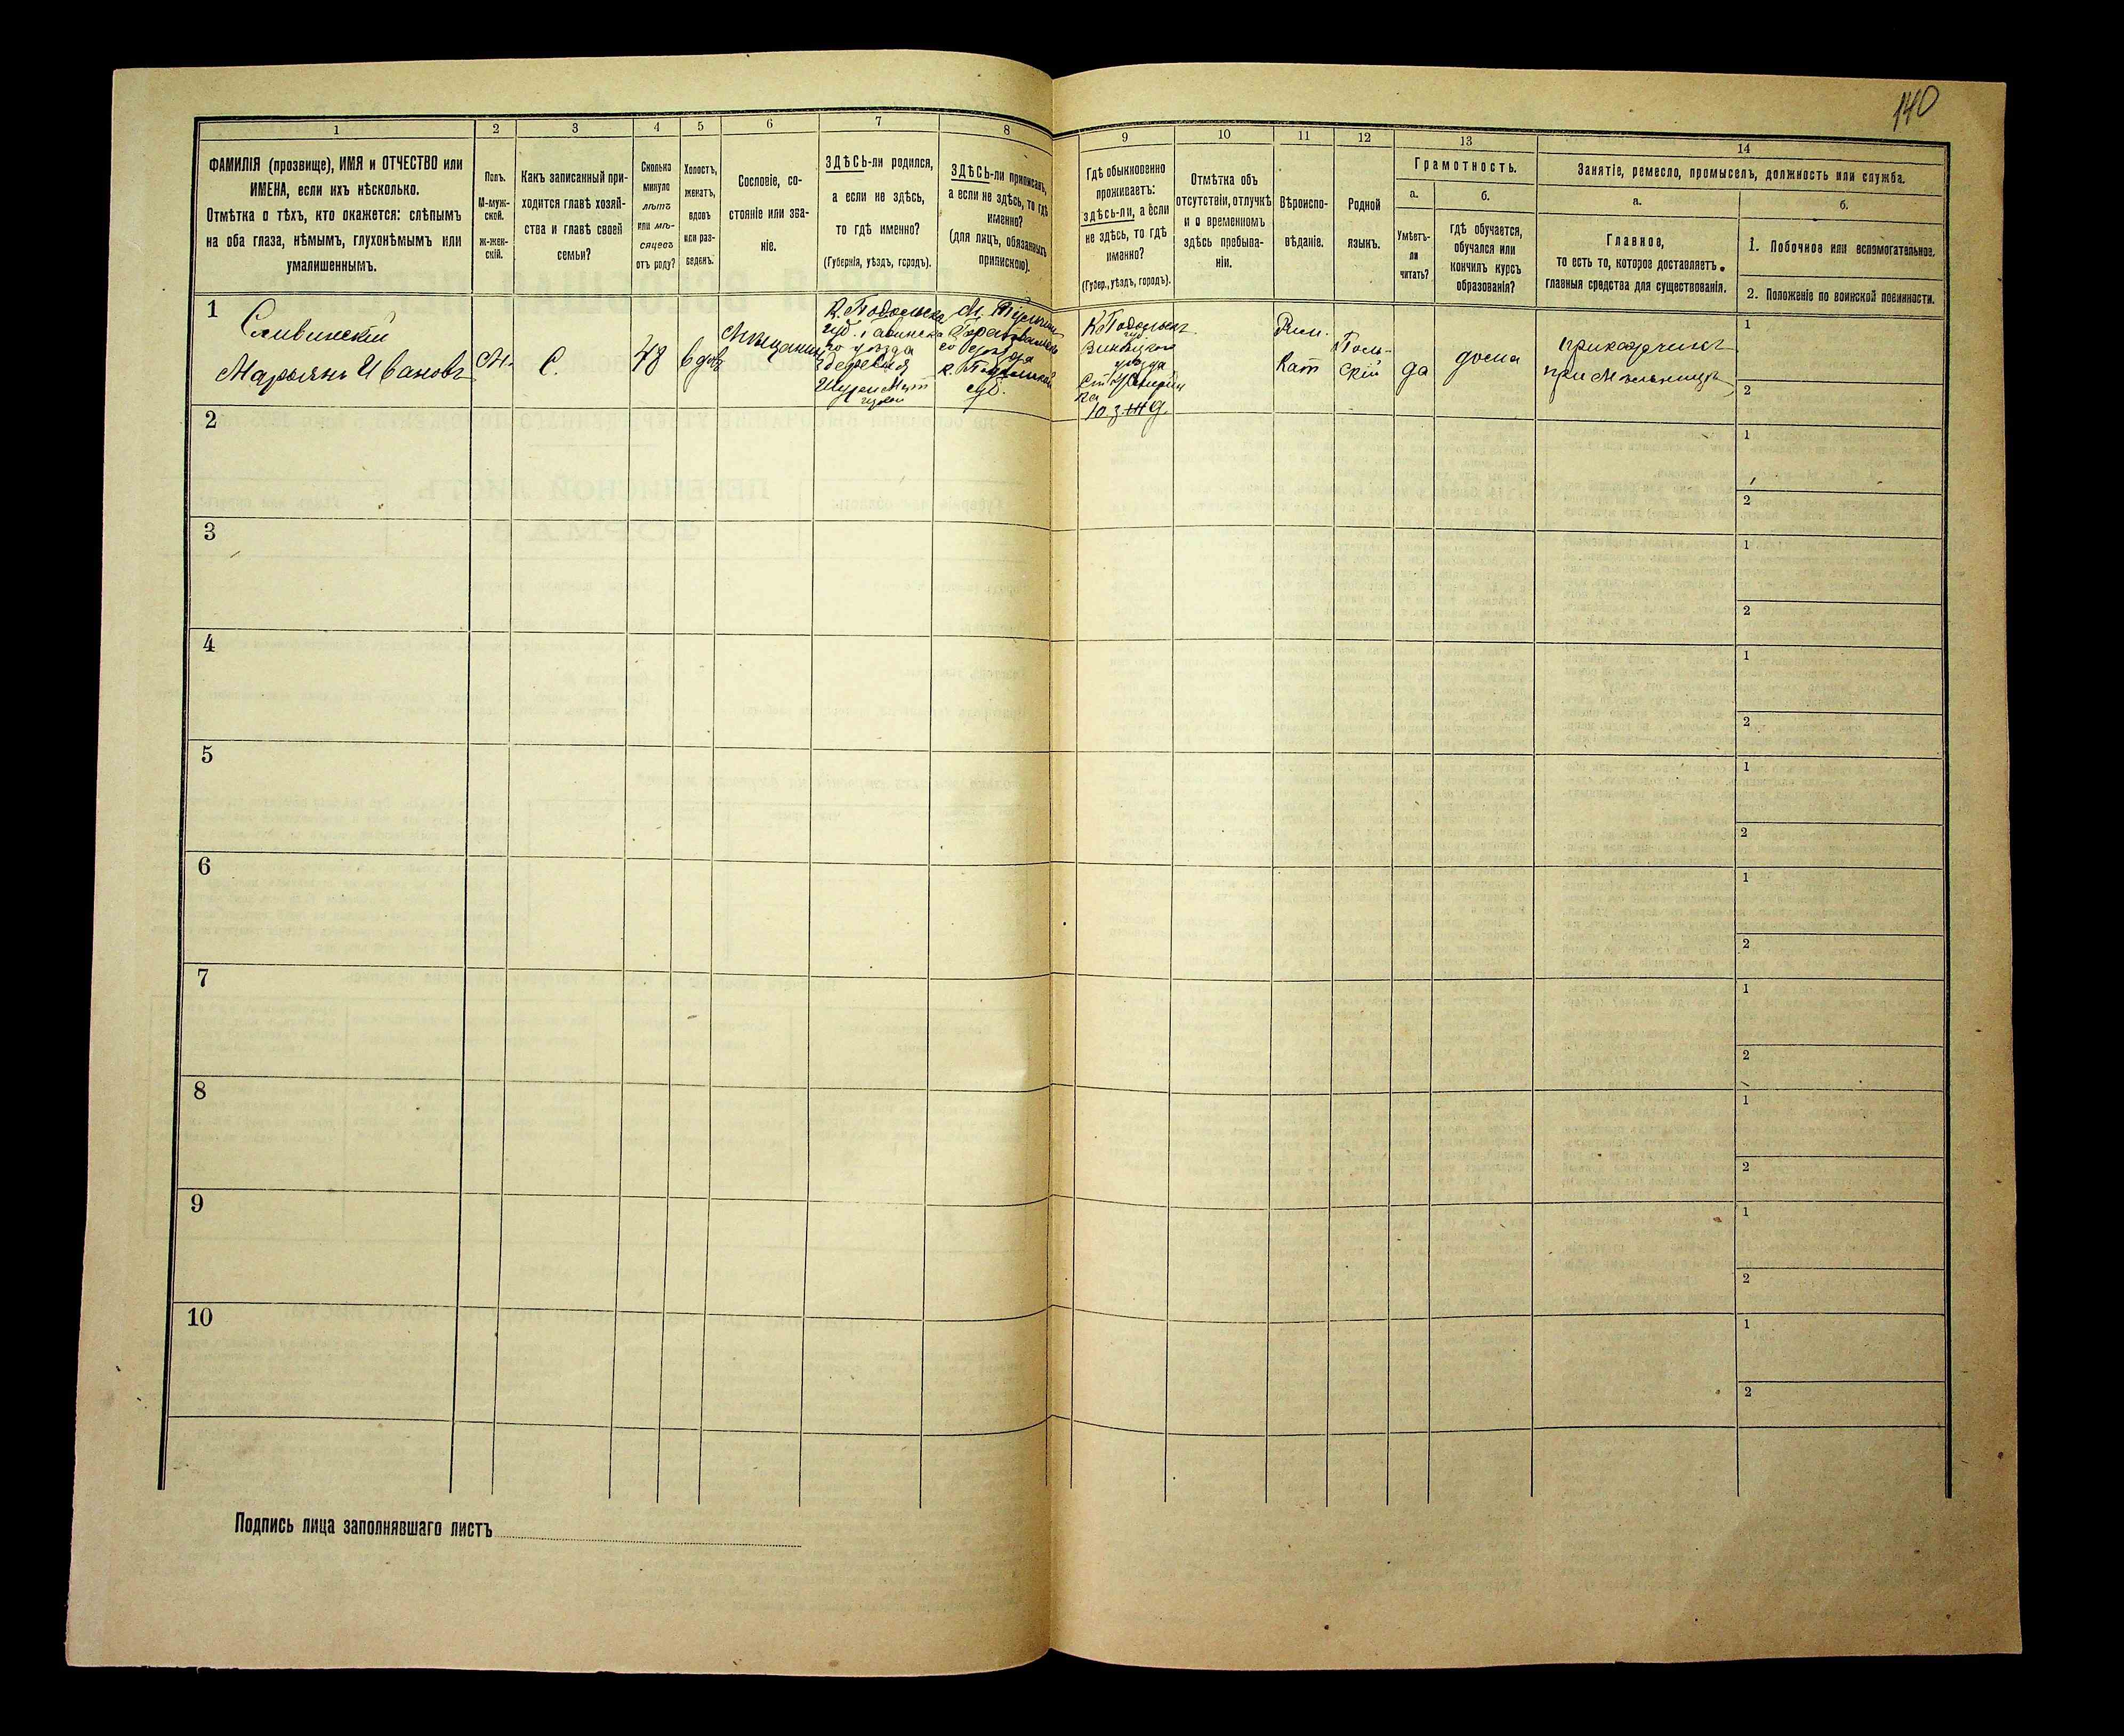 140
1
2
3
4
5
6
7
8
9
10
11
12
13
14
ФАМИЛІЯ (прозвище), ИМЯ и ОТЧЕСТВО или
ИМЕНА, если ихъ нѣсколько.
Отмѣтка о тѣхъ, кто окажется: слѣпымъ
на оба глаза, нѣмымъ, глухонѣмымъ или
умалишеннымъ.
Полъ.
М-муж-
ской.
Ж-жен-
скій.
Какъ записанный при-
ходится главѣ хозяй-
ства и главѣ своей
семьи?
Сколько
минуло
лѣтъ
или мѣ-
сяцевъ
отъ роду?
Холостъ,
женатъ,
вдовъ
или раз-
веденъ.
Сословіе, со-
стояніе или зва-
ніе.
ЗДѢСЬ-ли родился,
а если не здѣсь,
то гдѣ именно?
(Губернія, уѣздъ, городъ).
ЗДѢСЬ-ли приписанъ,
а если не здѣсь, то гдѣ
именно?
(для лицъ, обязанныхъ
припискою).
Гдѣ обыкновенно
проживаетъ:
здѣсь-ли, а если
не здѣсь, то гдѣ
именно?
(Губер., уѣздъ, городъ).
Отмѣтка объ
отсутствіи, отлучкѣ
и о временномъ
здѣсь пребыва-
ніи.
Вѣроиспо-
вѣданіе.
Родной
языкъ.
Грамотность.
а.
Умѣетъ-
ли
читать?
б.
гдѣ обучается,
обучался или
кончилъ курсъ
образованія?
Занятіе, ремесло, промыселъ, должность или служба.
а.
Главное,
то есть то, которое доставляетъ
главныя средства для существованія.
б.
1. Побочное или вспомогательное.
2. Положеніе по воинской повинности.
1
Сливинскій
Марьянъ Ивановъ
М.
С.
48
вдов
Мѣщанинъ
К. Подольска
губ. Гайсинска
го уѣзда
деревня
М. Тульчин
Брацлавска
го уѣзда
К. Подольской
губ.
К Подольск
губ
Винницкаго
уѣзда
Ю. З. Ж Д.
Рим.
Кат
Поль-
скій
да
дома
приказчикъ
при Мельницѣ
1
2
2
1
2
3
1
2
4
1
2
5
1
2
6
1
2
7
1
2
8
1
2
9
1
2
10
1
2
Подпись лица заполнявшаго листъ